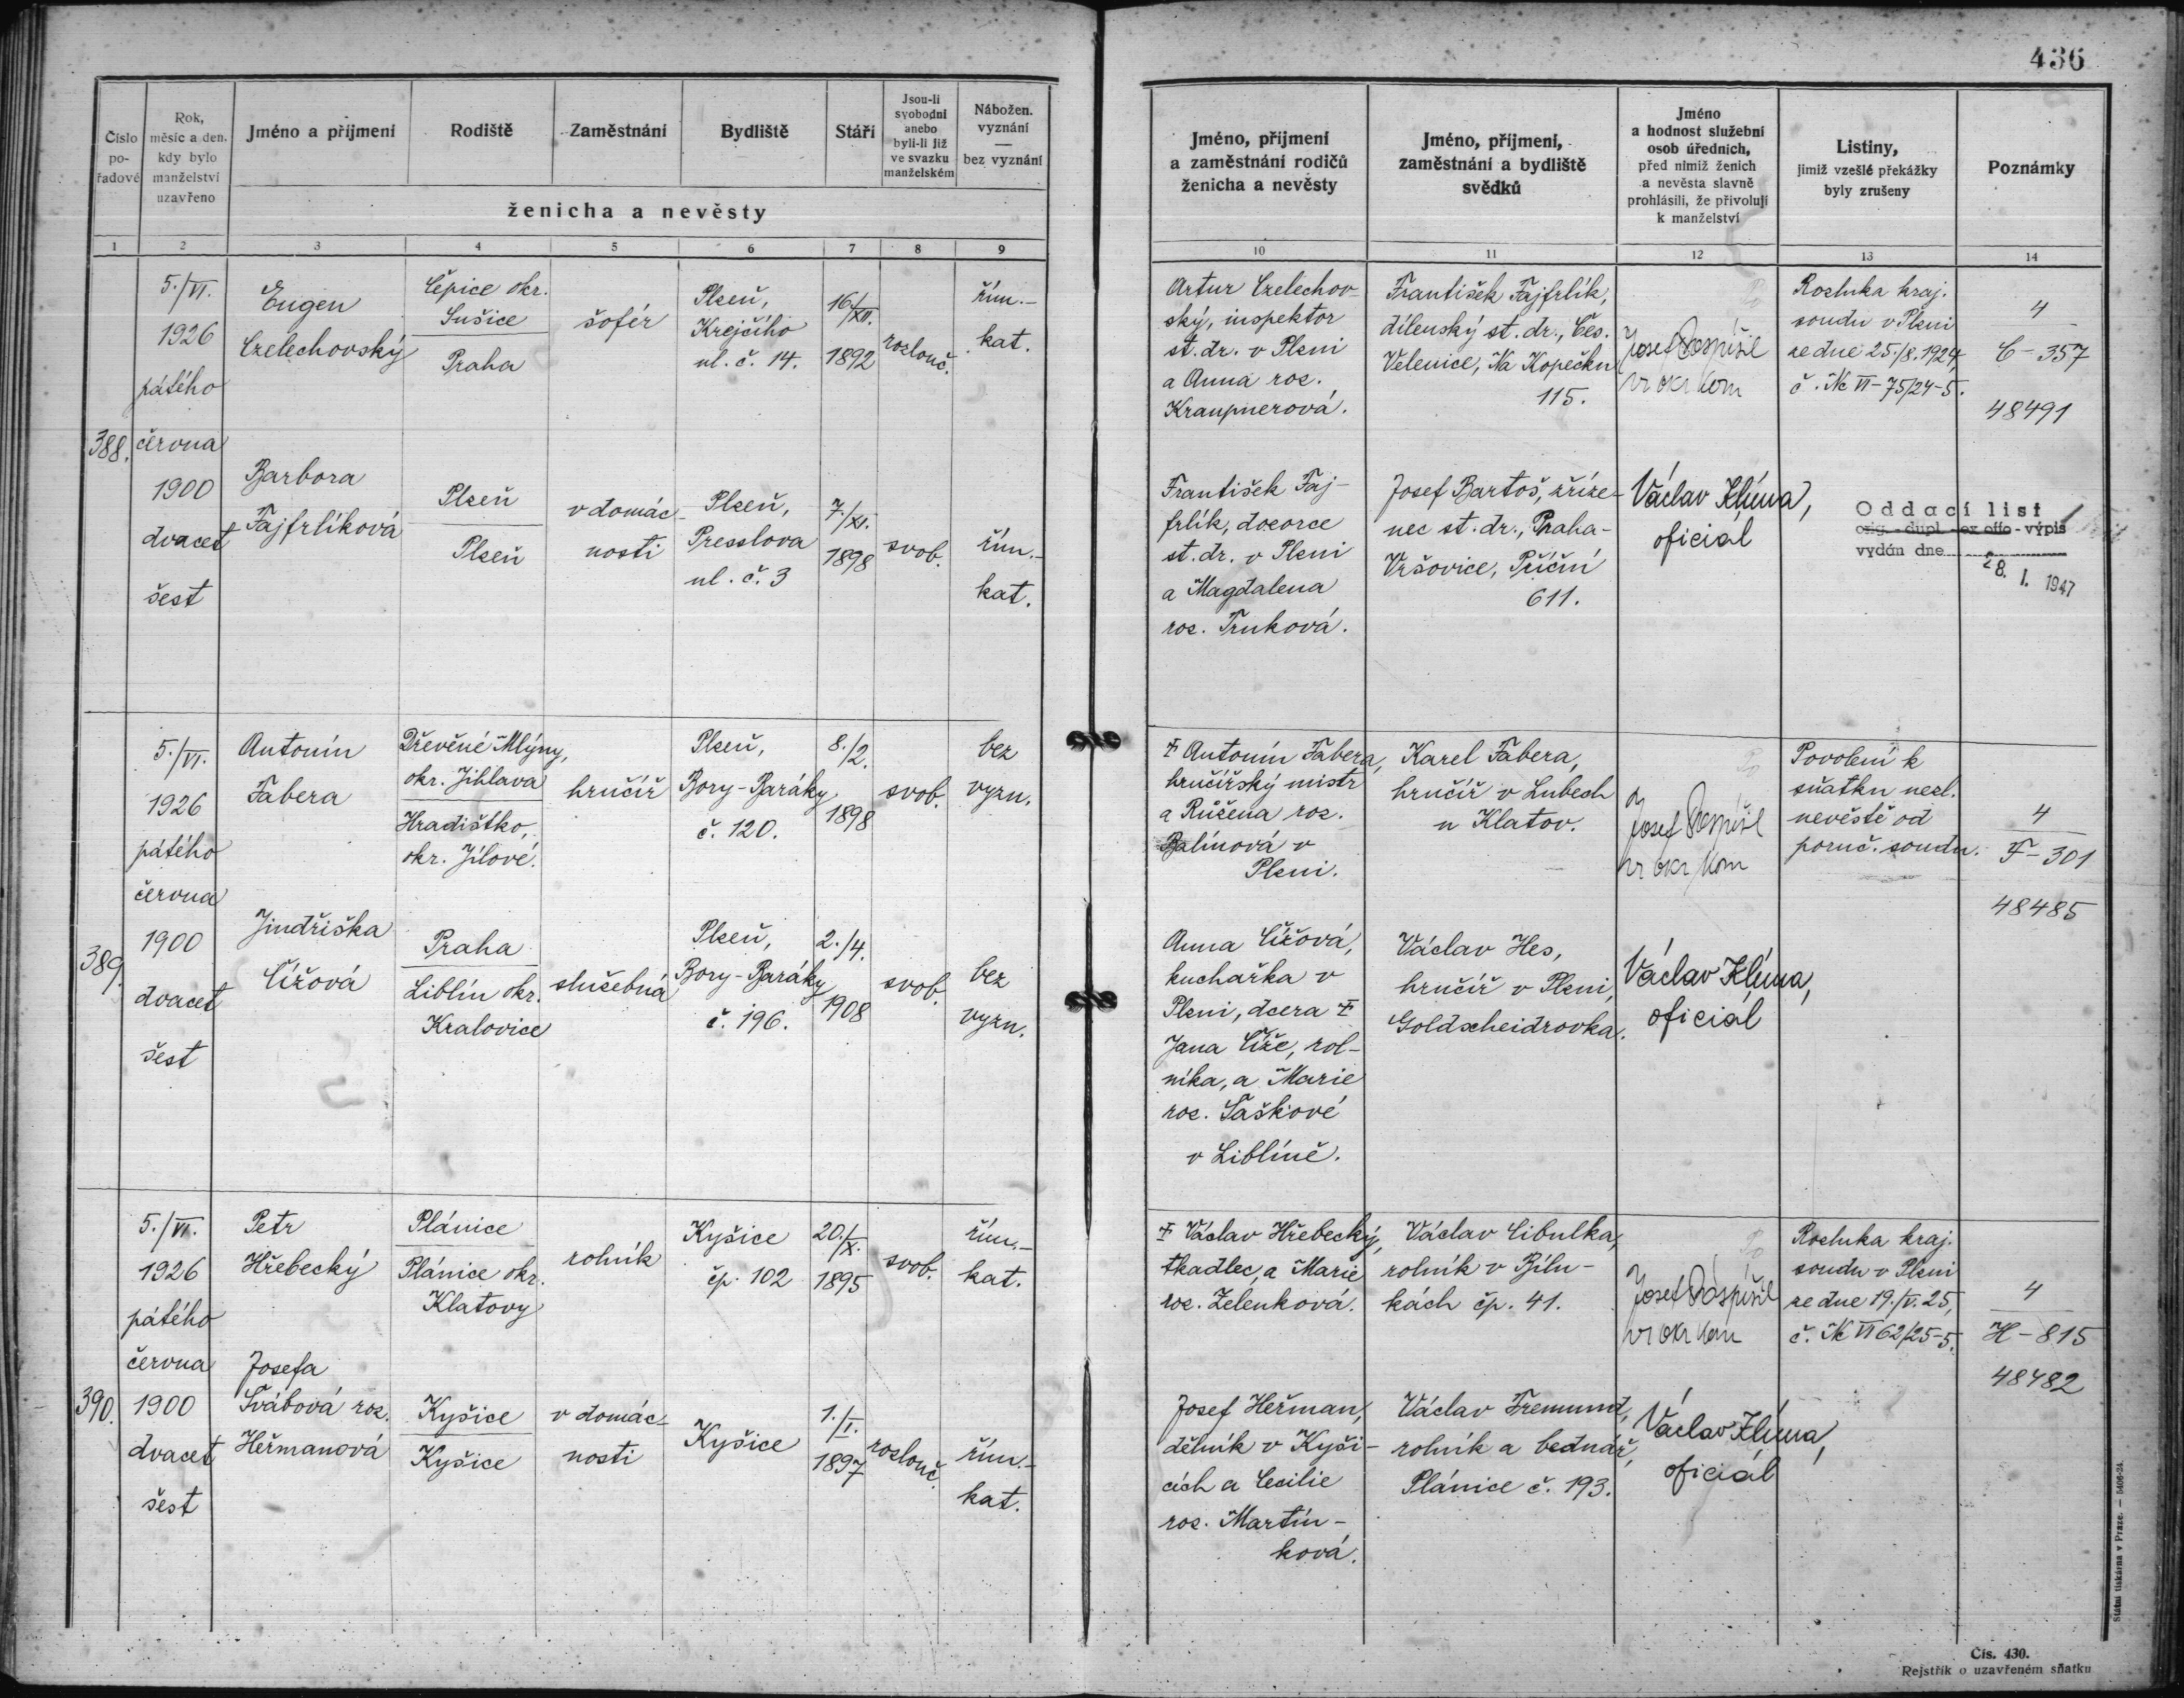 436
Číslo po- řadové
Rok, měsíc a den, kdy bylo manželství uzavřeno
Jméno a příjmení
Rodiště
Zaměstnání
Bydliště
Stáří
Jsou-li svobodni anebo byli-li již ve svazku manželském
Nábožen. vyznání — bez vyznání
ženicha a nevěsty
Jméno, příjmení a zaměstnání rodičů ženicha a nevěsty
Jméno, příjmení, zaměstnání a bydliště svědků
Jméno a hodnost služební osob úředních, před nimiž ženich a nevěsta slavně prohlásili, že přivolují k manželství
Listiny, jimiž vzešlé překážky byly zrušeny
Poznámky
1 2 3 4 5 6 7 8 9 10 11 12 13 14
388.
5./VI.
1926
pátého
června
1900
dvacet
šest
Eugen
Czelechovský
Čepice okr.
Sušice
Praha
šofér
Plzeň,
Krejčího
ul. č. 14.
16./XII.
1892
rozlouč.
řím.-
kat.
Artur Czelechov-
ský, inspektor
st. dr. v Plzni
a Anna roz.
Kraupnerová.
František Fajfrlík,
dílenský st. dr., Čes.
Velenice, Na Kopečku
115.
Josef Pospíšil
vr okr kom
Rozluka kraj.
soudu v Plzni
ze dne 25./8. 1924,
č. Nc VI-75/24-5.
4
C-357
48491
Barbora
Fajfrlíková
Plzeň
Plzeň
v domác-
nosti
Plzeň,
Presslova
ul. č. 3
7./XI.
1898
svob.
řím.-
kat.
František Faj-
frlík, dozorce
st. dr. v Plzni
a Magdalena
roz. Trnková.
Josef Bartoš, zříze-
nec st. dr., Praha-
Vršovice, Příční
611.
Václav Klíma,
oficiál
Oddací list
orig. - dupl. - ex offo - výpis
vydán dne
28. I. 1947
389.
5./VI.
1926
pátého
června
1900
dvacet
šest
Antonín
Fabera
Dřevěné Mlýny,
okr. Jihlava
Hradištko,
okr. Jílové.
hrnčíř
Plzeň,
Bory-Baráky
č. 120.
8./2.
1898
svob.
bez
vyzn.
† Antonín Fabera,
hrnčířský mistr
a Růžena roz.
Balínová v
Plzni.
Karel Fabera,
hrnčíř v Lubech
u Klatov.
Josef Pospíšil
vr okr kom
Povolení k
sňatku nezl.
nevěstě od
poruč. soudu.
4
F-301
48485
Jindřiška
Čížová
Praha
Liblín okr.
Kralovice
služebná
Plzeň,
Bory-Baráky
č. 196.
2./4.
1908
svob.
bez
vyzn.
Anna Čížová,
kuchařka v
Plzni, dcera †
Jana Číže, rol-
níka, a Marie
roz. Saškové
v Liblíně.
Václav Hes,
hrnčíř v Plzni,
Goldscheidrovka.
Václav Klíma,
oficiál
390.
5./VI.
1926
pátého
června
1900
dvacet
šest
Petr
Hřebecký
Plánice
Plánice okr.
Klatovy
rolník
Kyšice
čp. 102
20./X.
1895
svob.
řím.-
kat.
† Václav Hřebecký,
tkadlec, a Marie
roz. Zelenková.
Václav Cibulka,
rolník v Bílu-
kách čp. 41.
Josef Pospíšil
vr okr kom
Rozluka kraj.
soudu v Plzni
ze dne 19./V. 25,
č. Nc VI 62/25-5.
4
H-815
48482
Josefa
Švábová roz.
Heřmanová
Kyšice
Kyšice
v domác-
nosti
Kyšice
1./I.
1897
rozlouč.
řím.-
kat.
Josef Heřman,
dělník v Kyši-
cích a Cecilie
roz. Martín-
ková.
Václav Tremund,
rolník a bednář,
Plánice č. 193.
Václav Klíma,
oficiál
Státní tiskárna v Praze. — 5406-24.
Čís. 430.
Rejstřík o uzavřeném sňatku